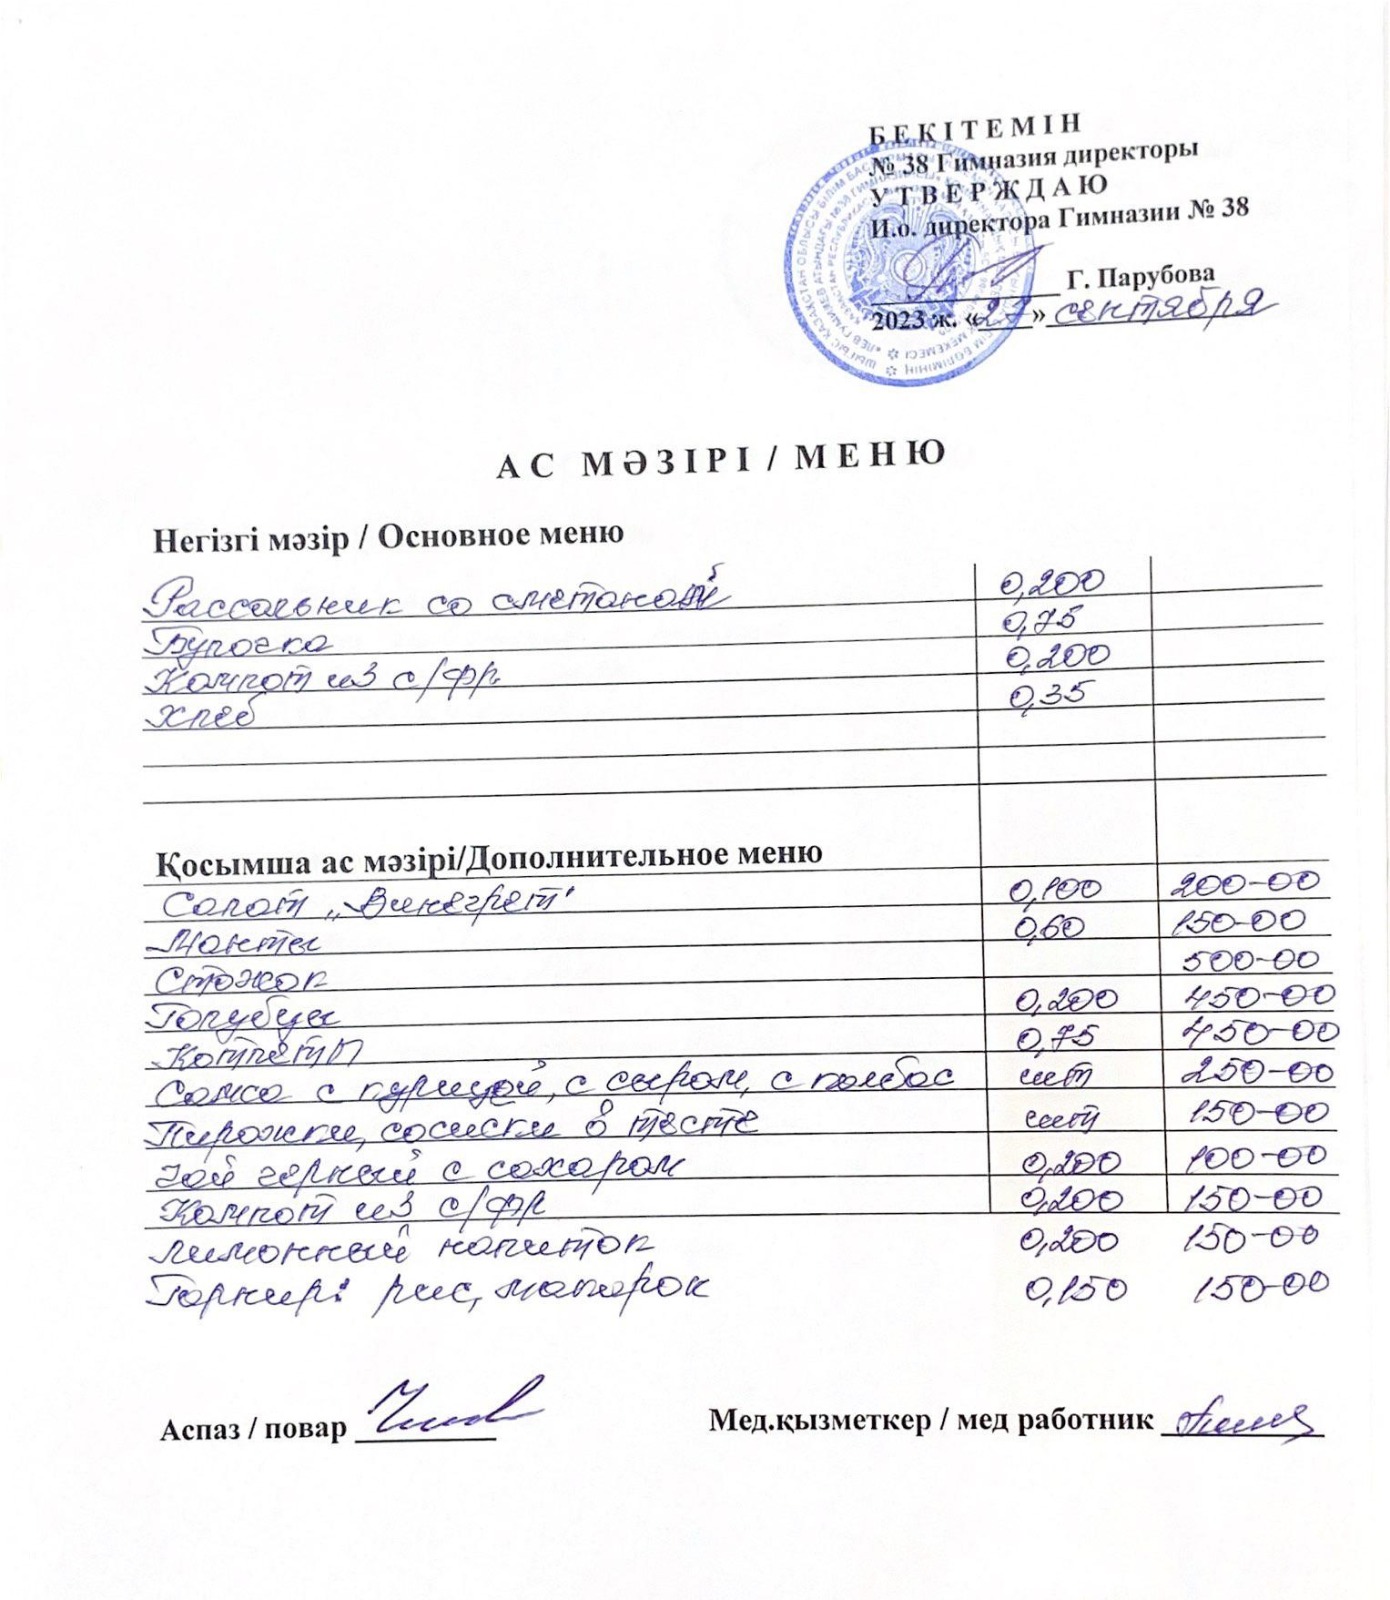 БЕКІТЕМІН
№ 38 Гимназия директоры
УТВЕРЖДАЮ
И.о. директора Гимназии № 38
Г. Парубова
2023 ж. « » сентября
АС МӘЗІРІ / МЕНЮ
Негізгі мәзір / Основное меню
Рассольник со сметаной 0,200
Булочка 0,75
Компот из с/фр. 0,200
Хлеб 0,35
Қосымша ас мәзірі/Дополнительное меню
Салат „Винегрет" 0,100 200-00
Манты 0,60 150-00
Стожок 500-00
Голубцы 0,200 450-00
Котлеты 0,75 450-00
Самса с курицей, с сыром, с колбас шт 250-00
Пирожки, сосиски в тесте шт 150-00
Чай черный с сахаром 0,200 100-00
Компот из с/фр 0,200 150-00
Лимонный напиток 0,200 150-00
Гарнир: рис, макарон 0,150 150-00
Аспаз / повар Мед.қызметкер / мед работник